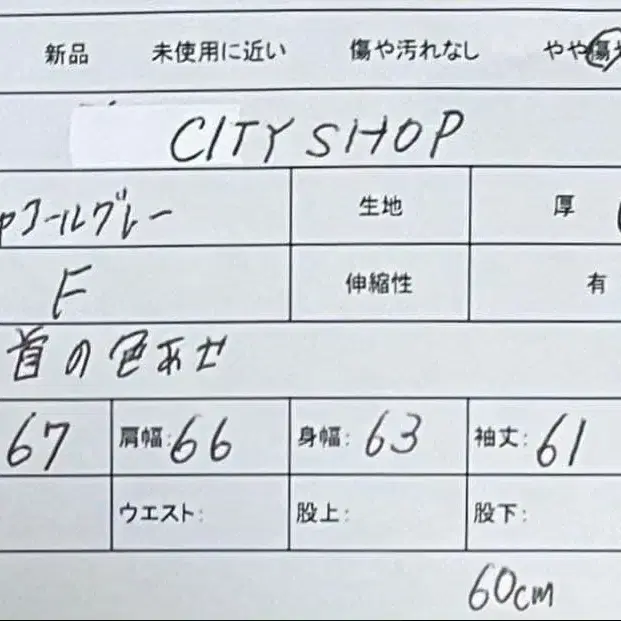 新品 未使用に近い 傷や汚れなし やや傷
CITY SHOP
ャコールグレー 生地 厚
F 伸縮性 有
首の色あせ
67 肩幅: 66 身幅: 63 袖丈: 61
ウエスト: 股上: 股下:
60cm